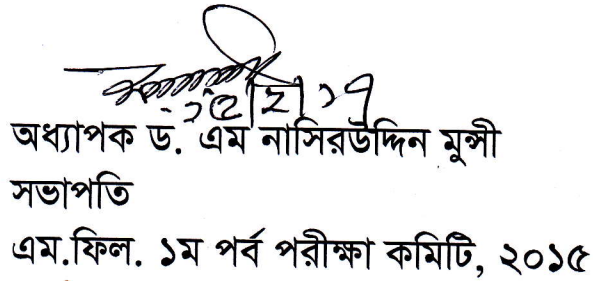 অধ্যাপক ড. এম নাসিরউদ্দিন মুন্সী
সভাপতি
এম.ফিল. ১ম পর্ব পরীক্ষা কমিটি, ২০১৫